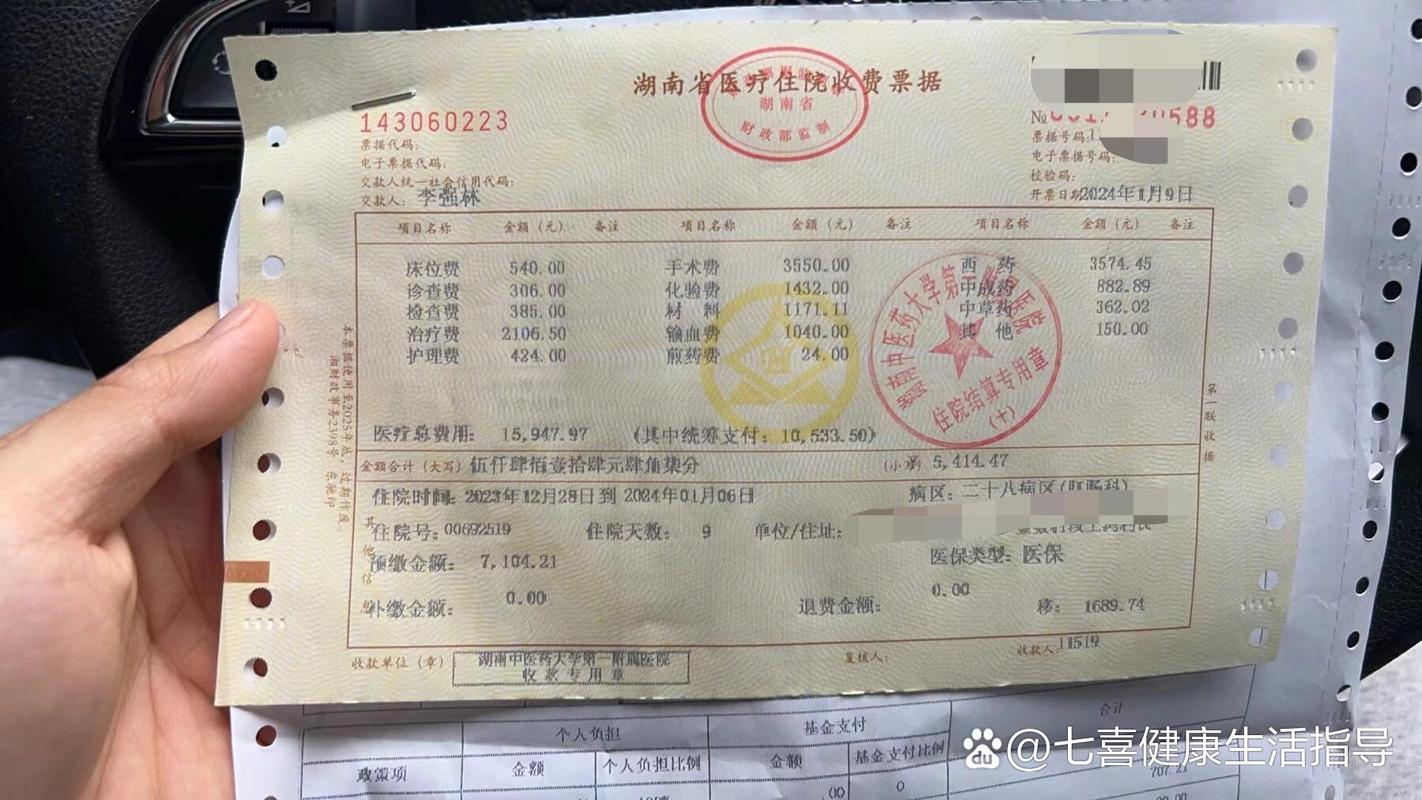 湖南省医疗住院收费票据
湖南省
财政部监制
143060223
票据代码:
电子票据代码:
交款人统一社会信用代码:
交款人: 李强林
№
0588
票据号码:1
电子票据号码:
校验码:
开票日期2024年1月9日
项目名称 金额（元） 备注 项目名称 金额（元） 备注 项目名称 金额（元） 备注
床位费 540.00 手术费 3550.00 西 药 3574.45
诊查费 306.00 化验费 1432.00 中成药 882.89
检查费 385.00 材 料 1171.11 中草药 362.02
治疗费 2106.50 输血费 1040.00 其 他 150.00
护理费 424.00 煎药费 24.00
湖南中医药大学第一附属医院
住院结算专用章
(十)
医疗总费用: 15,947.97 (其中统筹支付: 10,533.50)
金额合计（大写）伍仟肆佰壹拾肆元肆角柒分 (小写) 5,414.47
住院时间: 2023年12月28日到 2024年01月06日 病区: 二十八病区(肛肠科)
住院号: 00692519 住院天数: 9 单位/住址:
预缴金额: 7,104.21 医保类型: 医保
补缴金额: 0.00 退费金额: 0.00 移: 1689.74
其他信息
收款单位（章） 湖南中医药大学第一附属医院
收款专用章
复核人: 收款人:11519
本票据使用至2025年底，过期作废
湘财政事务2398号
第一联 收据
个人负担 基金支付 合计
政策项 金额 个人负担比例 金额 基金支付比例
0
@七喜健康生活指导